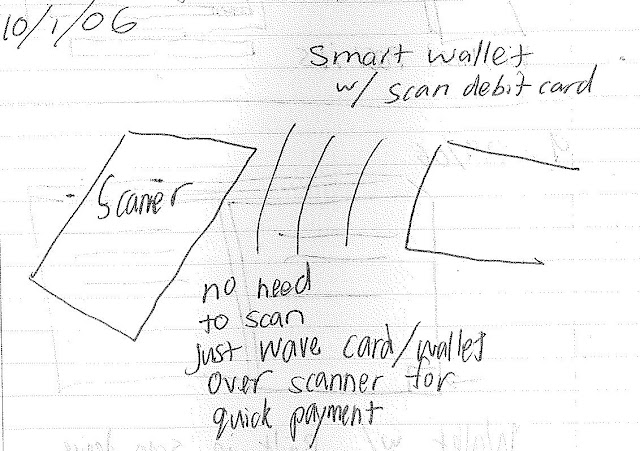 10/1/06
Smart wallet
w/ scan debit card
Scanner
no need
to scan
just wave card/wallet
over scanner for
quick payment